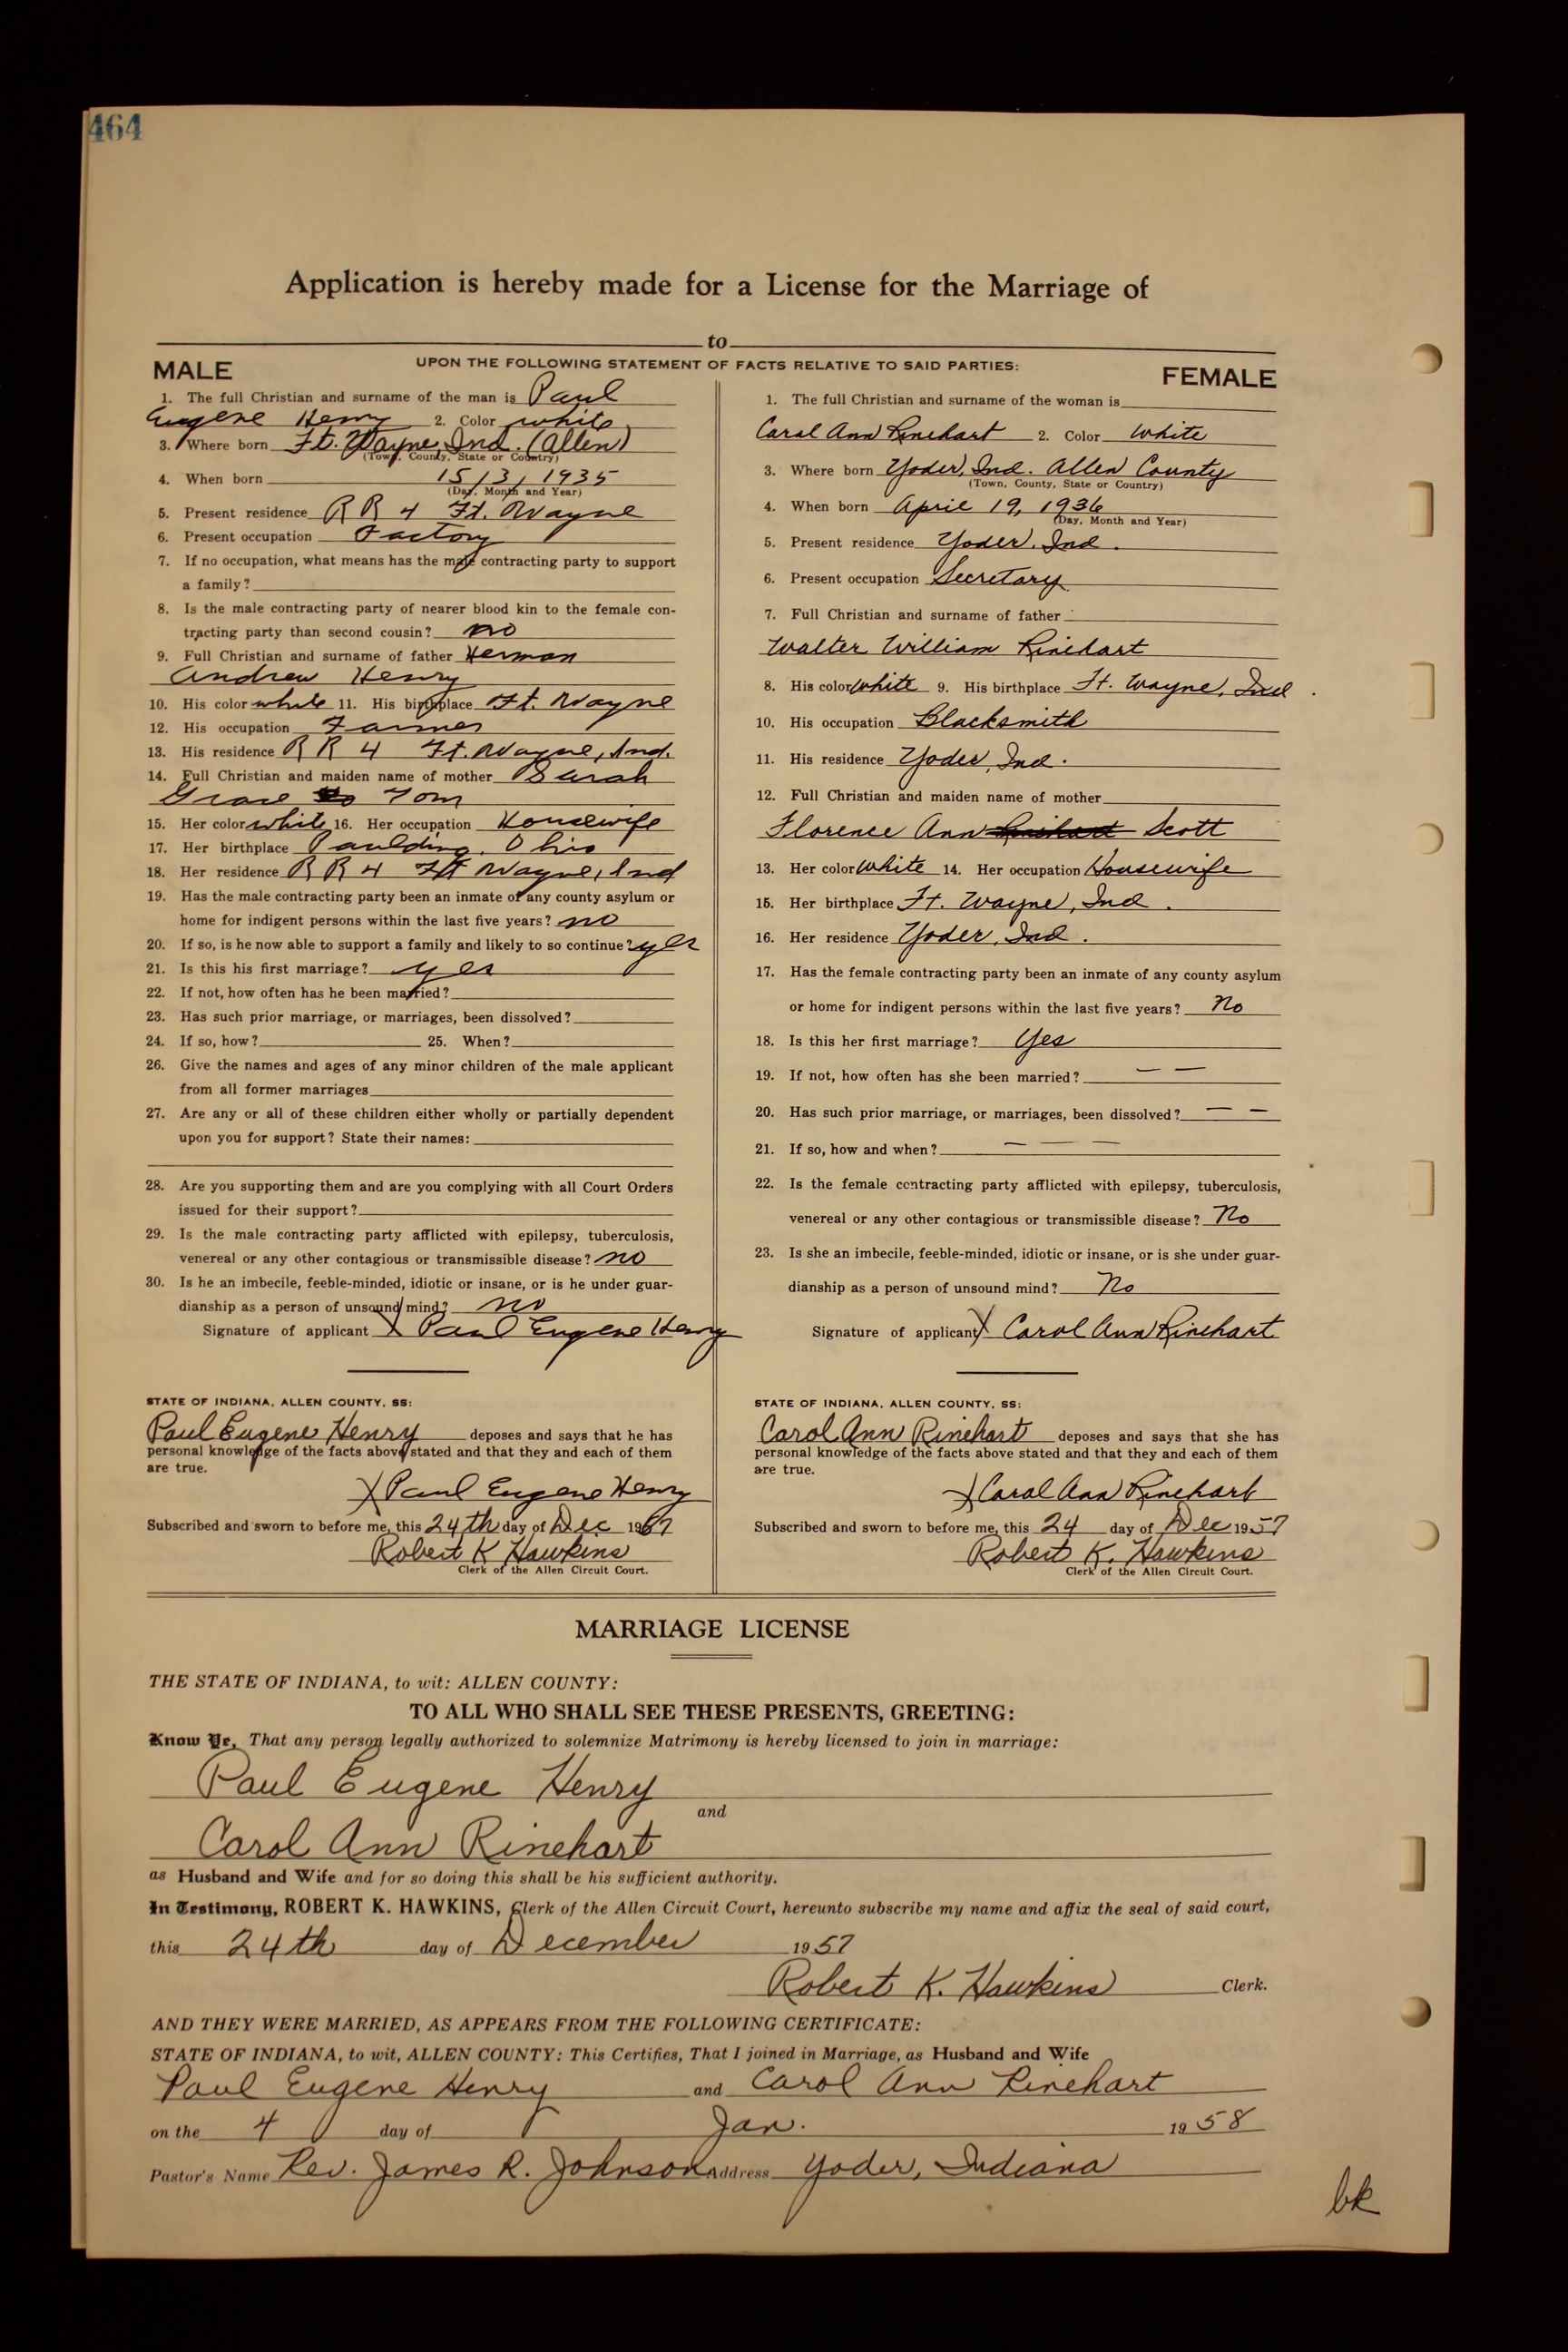 464
Application is hereby made for a License for the Marriage of
to
UPON THE FOLLOWING STATEMENT OF FACTS RELATIVE TO SAID PARTIES:
MALE
1. The full Christian and surname of the man is Paul
Eugene Henry 2. Color white
3. Where born Ft. Wayne, Ind. (Allen)
(Town, County, State or Country)
4. When born 15/3/1935
(Day, Month and Year)
5. Present residence R R 4 Ft. Wayne
6. Present occupation Factory
7. If no occupation, what means has the male contracting party to support
a family?
8. Is the male contracting party of nearer blood kin to the female con-
tracting party than second cousin? no
9. Full Christian and surname of father Herman
Andrew Henry
10. His color white 11. His birthplace Ft. Wayne
12. His occupation Farmer
13. His residence R R 4 Ft. Wayne, Ind.
14. Full Christian and maiden name of mother Sarah
Grace Yom
15. Her color white 16. Her occupation Housewife
17. Her birthplace Paulding, Ohio
18. Her residence R R 4 Ft Wayne, Ind
19. Has the male contracting party been an inmate of any county asylum or
home for indigent persons within the last five years? no
20. If so, is he now able to support a family and likely to so continue? yes
21. Is this his first marriage? yes
22. If not, how often has he been married?
23. Has such prior marriage, or marriages, been dissolved?
24. If so, how? 25. When?
26. Give the names and ages of any minor children of the male applicant
from all former marriages
27. Are any or all of these children either wholly or partially dependent
upon you for support? State their names:
28. Are you supporting them and are you complying with all Court Orders
issued for their support?
29. Is the male contracting party afflicted with epilepsy, tuberculosis,
venereal or any other contagious or transmissible disease? no
30. Is he an imbecile, feeble-minded, idiotic or insane, or is he under guar-
dianship as a person of unsound mind? no
Signature of applicant X Paul Eugene Henry
STATE OF INDIANA, ALLEN COUNTY, SS:
Paul Eugene Henry deposes and says that he has
personal knowledge of the facts above stated and that they and each of them
are true.
X Paul Eugene Henry
Subscribed and sworn to before me, this 24th day of Dec 1957
Robert K Hawkins
Clerk of the Allen Circuit Court.
FEMALE
1. The full Christian and surname of the woman is
Carol Ann Rinehart 2. Color White
3. Where born Yoder, Ind. Allen County
(Town, County, State or Country)
4. When born April 19, 1936
(Day, Month and Year)
5. Present residence Yoder, Ind.
6. Present occupation Secretary
7. Full Christian and surname of father
Walter William Rinehart
8. His color White 9. His birthplace Ft. Wayne, Ind.
10. His occupation Blacksmith
11. His residence Yoder, Ind.
12. Full Christian and maiden name of mother
Florence Ann Rinehart Scott
13. Her color White 14. Her occupation Housewife
15. Her birthplace Ft. Wayne, Ind.
16. Her residence Yoder, Ind.
17. Has the female contracting party been an inmate of any county asylum
or home for indigent persons within the last five years? No
18. Is this her first marriage? Yes
19. If not, how often has she been married? — —
20. Has such prior marriage, or marriages, been dissolved? — —
21. If so, how and when? — — —
22. Is the female contracting party afflicted with epilepsy, tuberculosis,
venereal or any other contagious or transmissible disease? No
23. Is she an imbecile, feeble-minded, idiotic or insane, or is she under guar-
dianship as a person of unsound mind? No
Signature of applicant X Carol Ann Rinehart
STATE OF INDIANA, ALLEN COUNTY, SS:
Carol Ann Rinehart deposes and says that she has
personal knowledge of the facts above stated and that they and each of them
are true.
X Carol Ann Rinehart
Subscribed and sworn to before me, this 24 day of Dec 1957
Robert K. Hawkins
Clerk of the Allen Circuit Court.
MARRIAGE LICENSE
THE STATE OF INDIANA, to wit: ALLEN COUNTY:
TO ALL WHO SHALL SEE THESE PRESENTS, GREETING:
Know Ye, That any person legally authorized to solemnize Matrimony is hereby licensed to join in marriage:
Paul Eugene Henry
and
Carol Ann Rinehart
as Husband and Wife and for so doing this shall be his sufficient authority.
In Testimony, ROBERT K. HAWKINS, Clerk of the Allen Circuit Court, hereunto subscribe my name and affix the seal of said court,
this 24th day of December 1957
Robert K. Hawkins Clerk.
AND THEY WERE MARRIED, AS APPEARS FROM THE FOLLOWING CERTIFICATE:
STATE OF INDIANA, to wit, ALLEN COUNTY: This Certifies, That I joined in Marriage, as Husband and Wife
Paul Eugene Henry and Carol Ann Rinehart
on the 4 day of Jan. 1958
Pastor's Name Rev. James R. Johnson Address Yoder, Indiana
bk